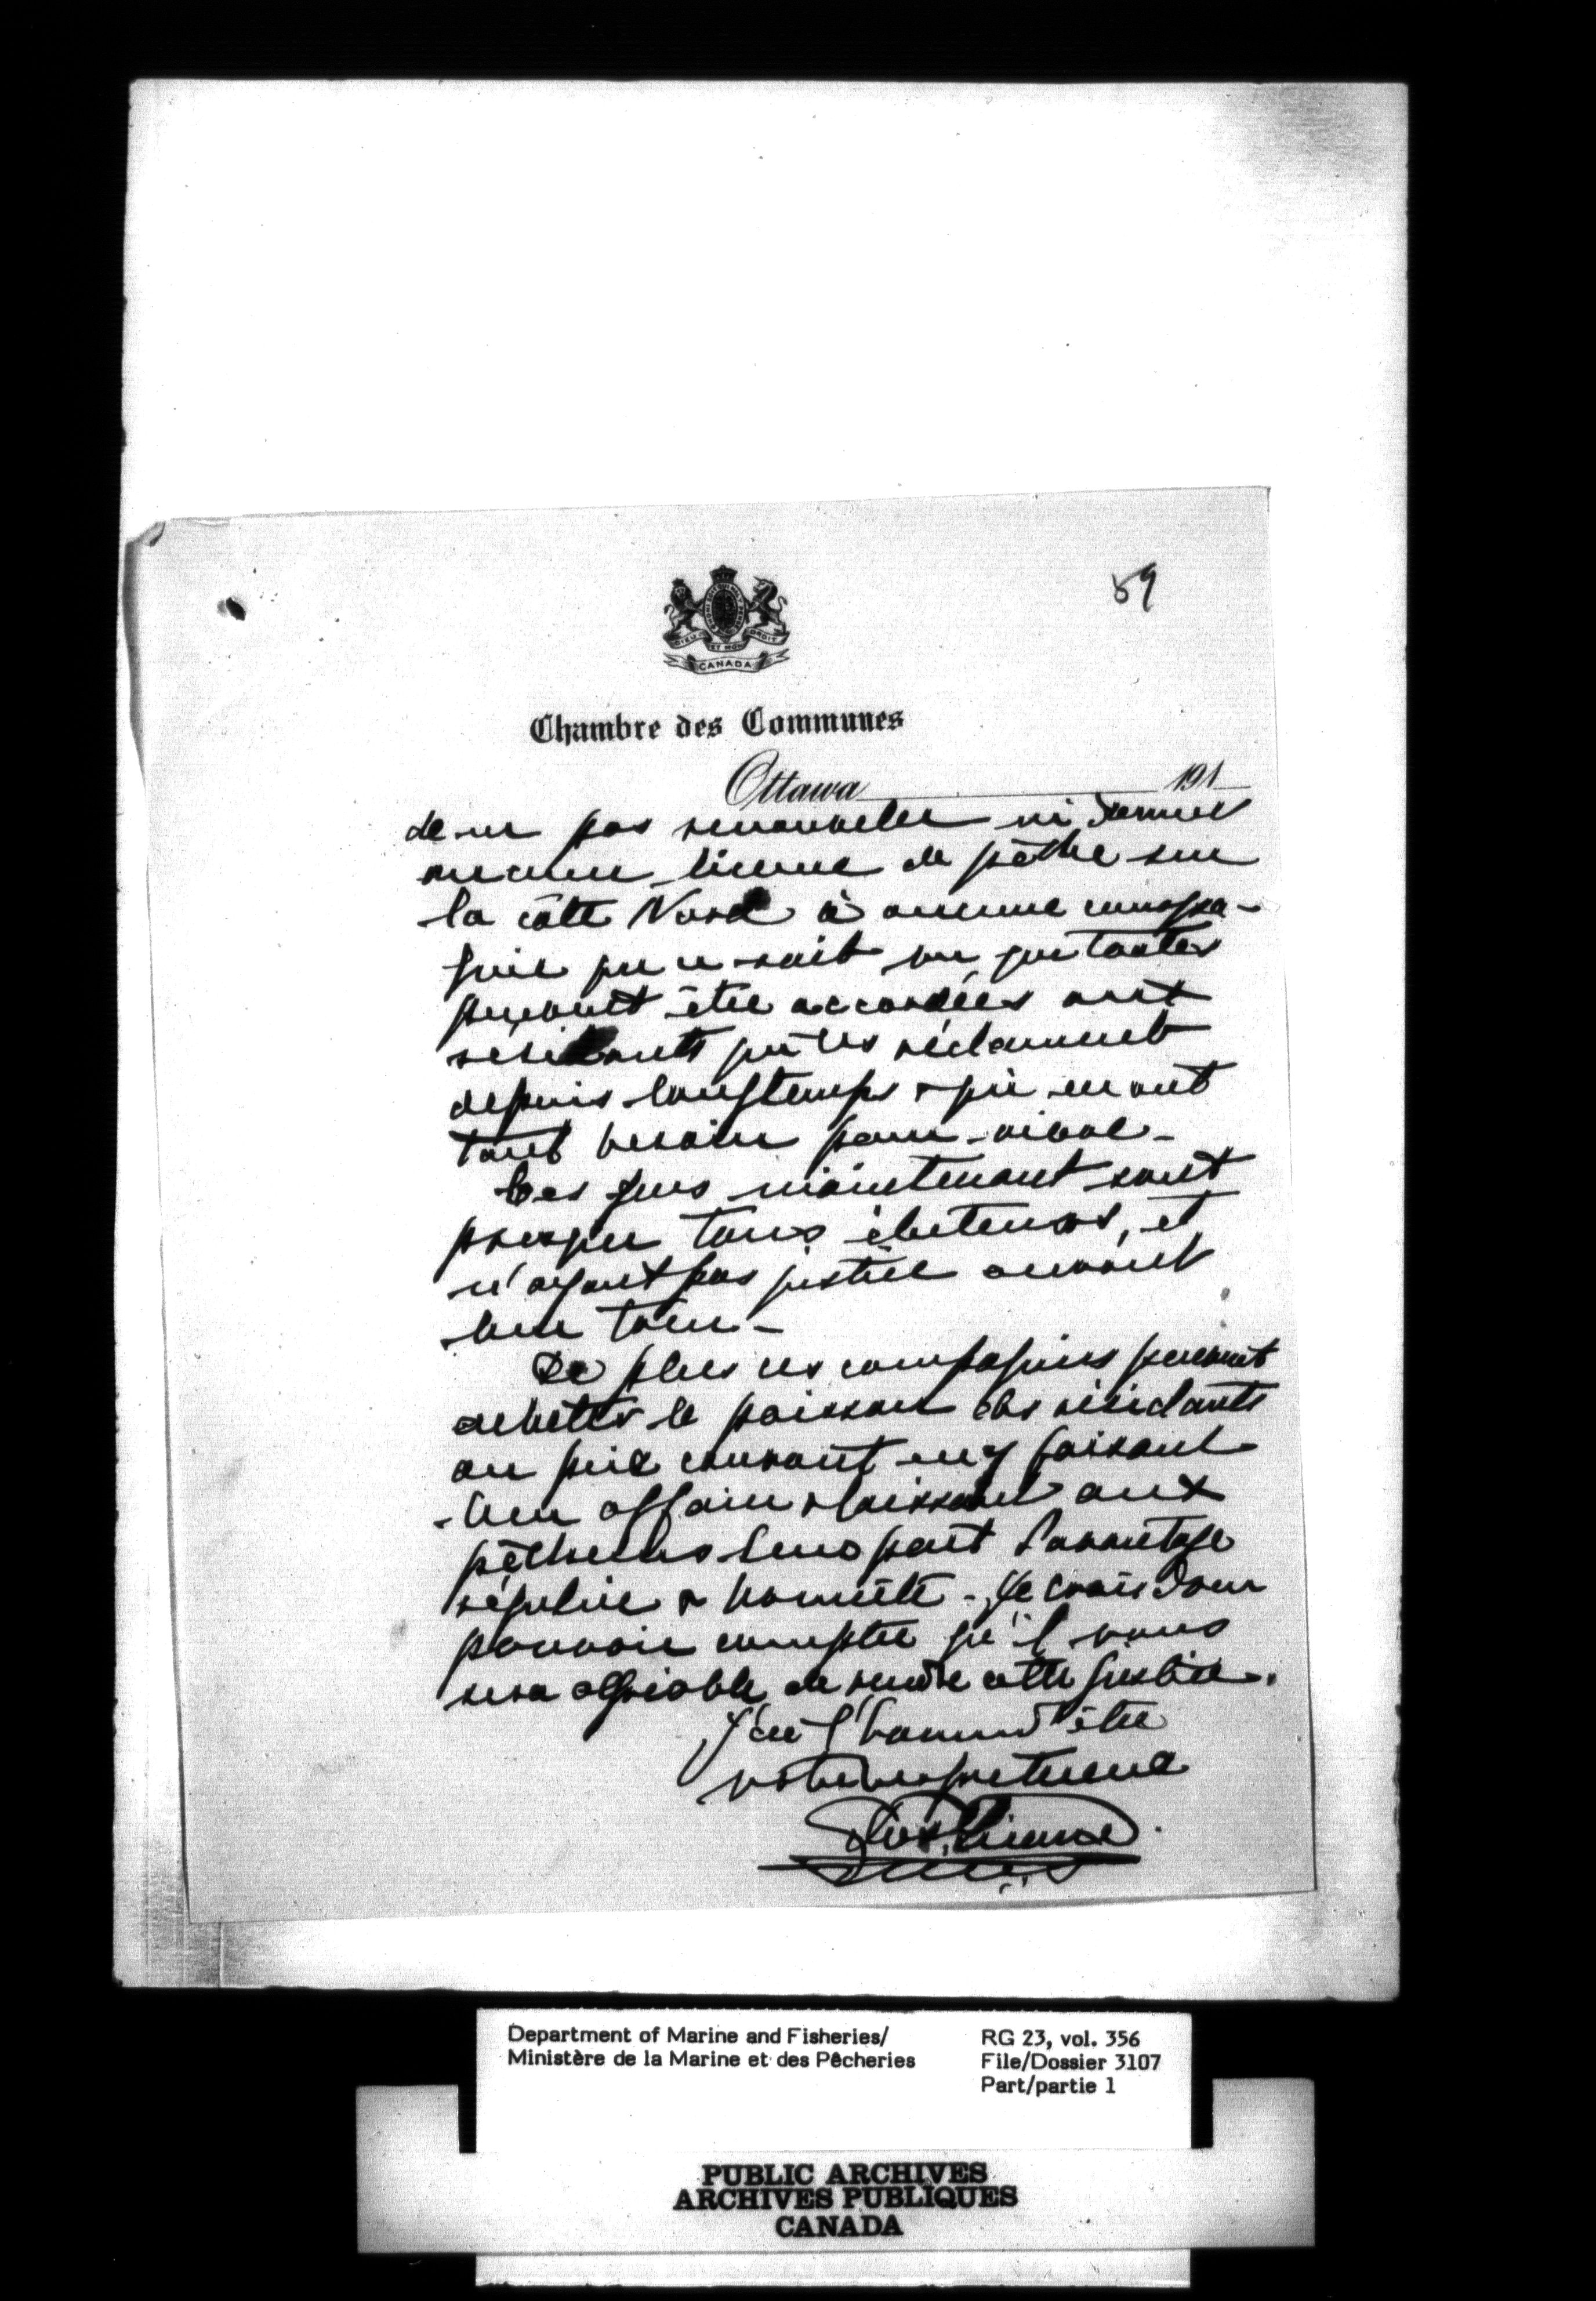 59
DIEU ET MON DROIT
CANADA
Chambre des Communes
Ottawa 191
de ne pas renouveler ni donner
aucune license de pêche sur
la côte Nord à aucune compa-
gnie que ce soit vu que toutes
peuvent être accordées aux
résidants qui les réclament
depuis longtemps & qui en ont
tant besoin pour vivre -
Ces gens maintenant sont
presque tous électeurs, et
n'ayant pas justice auront
leur tour -
De plus ces compagnies peuvent
acheter le poisson des résidants
au prix courant en y faisant
leur affaire & laissant aux
pêcheurs leurs part d'avantage
régulier & honnête - Je crois donc
pouvoir compter qu'il vous
sera agréable de rendre cette justice.
J'ai l'honneur d'être
votre respectueux
Department of Marine and Fisheries/
Ministère de la Marine et des Pêcheries
RG 23, vol. 356
File/Dossier 3107
Part/partie 1
PUBLIC ARCHIVES
ARCHIVES PUBLIQUES
CANADA